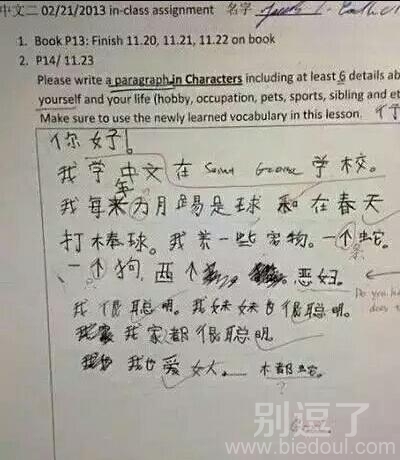 中文二 02/21/2013 in-class assignment 名字
1. Book P13: Finish 11.20, 11.21, 11.22 on book
2. P14/ 11.23
Please write a paragraph in Characters including at least 6 details ab
yourself and your life (hobby, occupation, pets, sports, sibling and et
Make sure to use the newly learned vocabulary in this lesson.
你好!
我学中文在 George 学校。
我每 为月踢足球和在春天
打棒球。我养一些宠物。一个蛇
一个狗, 两个 。恶妇。
Do you ha
我很聪明。我妹妹也很聪明。
我家都很聪明。
我也爱女人。 都蛇。
?
别逗了
www.biedoul.com